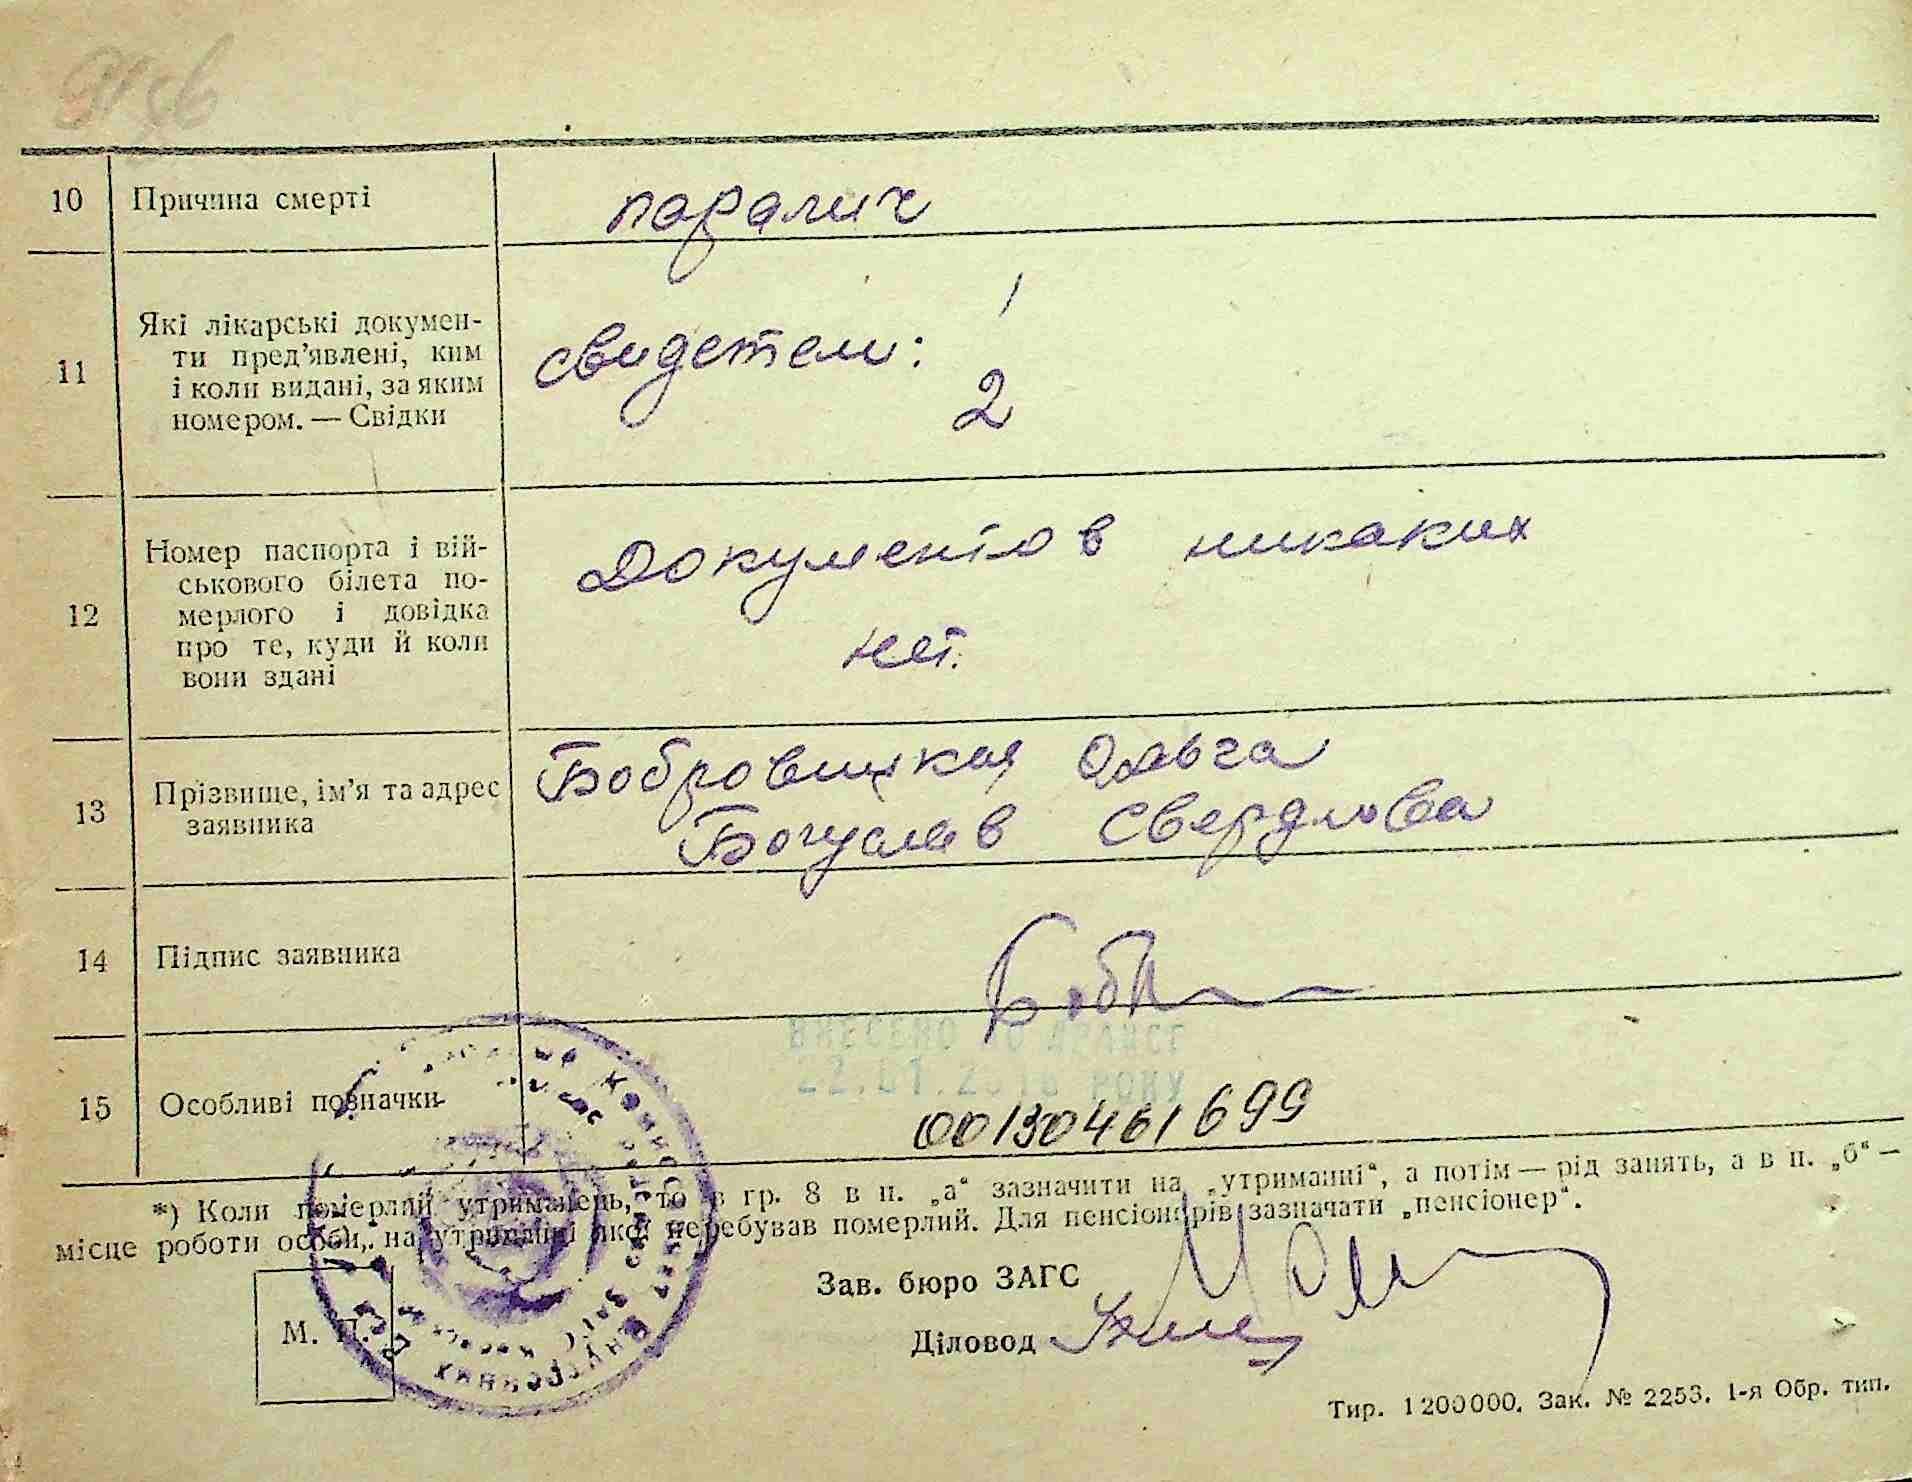 10 Причина смерті паралич
11 Які лікарські докумен-
ти пред’явлені, ким
і коли видані, за яким
номером. — Свідки
свидетели: 1
2
12 Номер паспорта і вій-
ськового білета по-
мерлого і довідка
про те, куди й коли
вони здані
Документов никаких
нет.
13 Прізвище, ім’я та адрес
заявника
Бобровицкая Ольга
Богуслав Свердлова
14 Підпис заявника
15 Особливі позначки
ВНЕСЕНО ДО ДРАЦСГ
РОКУ
00130461699
*) Коли померлий утриманець, то в гр. 8 в п. „а“ зазначити на „утриманні“, а потім — рід занять, а в п. „б“ —
місце роботи особи, на утриманні якої перебував померлий. Для пенсіонерів зазначати „пенсіонер“.
Зав. бюро ЗАГС
М. П.
Діловод
Внутренних
Тир. 1200000. Зак. № 2253. 1-я Обр. тип.